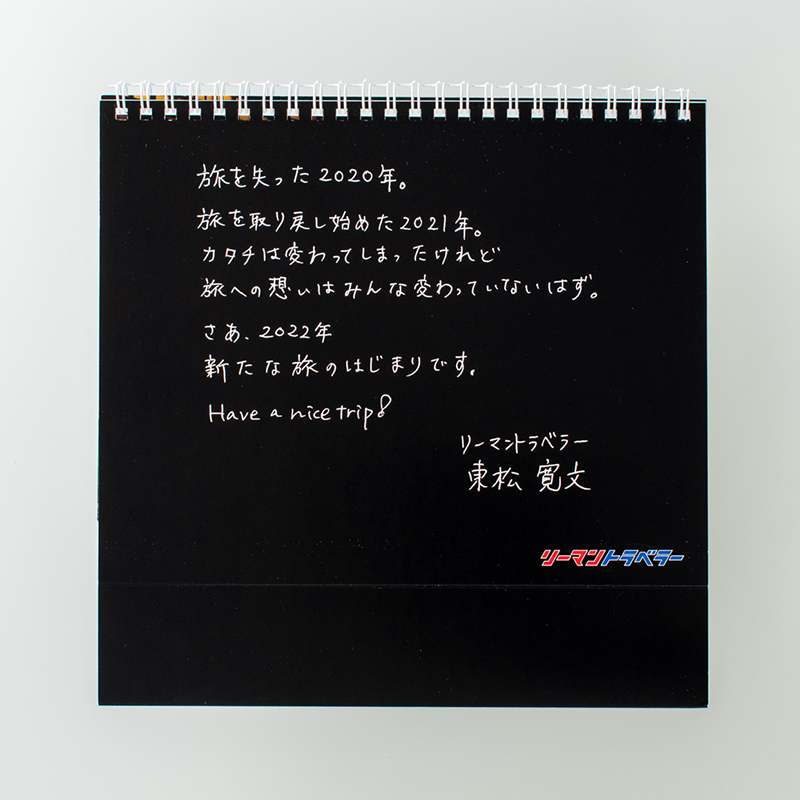 旅を失った2020年。
旅を取り戻し始めた2021年。
カタチは変わってしまったけれど
旅への想いはみんな変わっていないはず。
さあ、2022年
新たな旅のはじまりです。
Have a nice trip!
リーマントラベラー
東松 寛文
リーマントラベラー